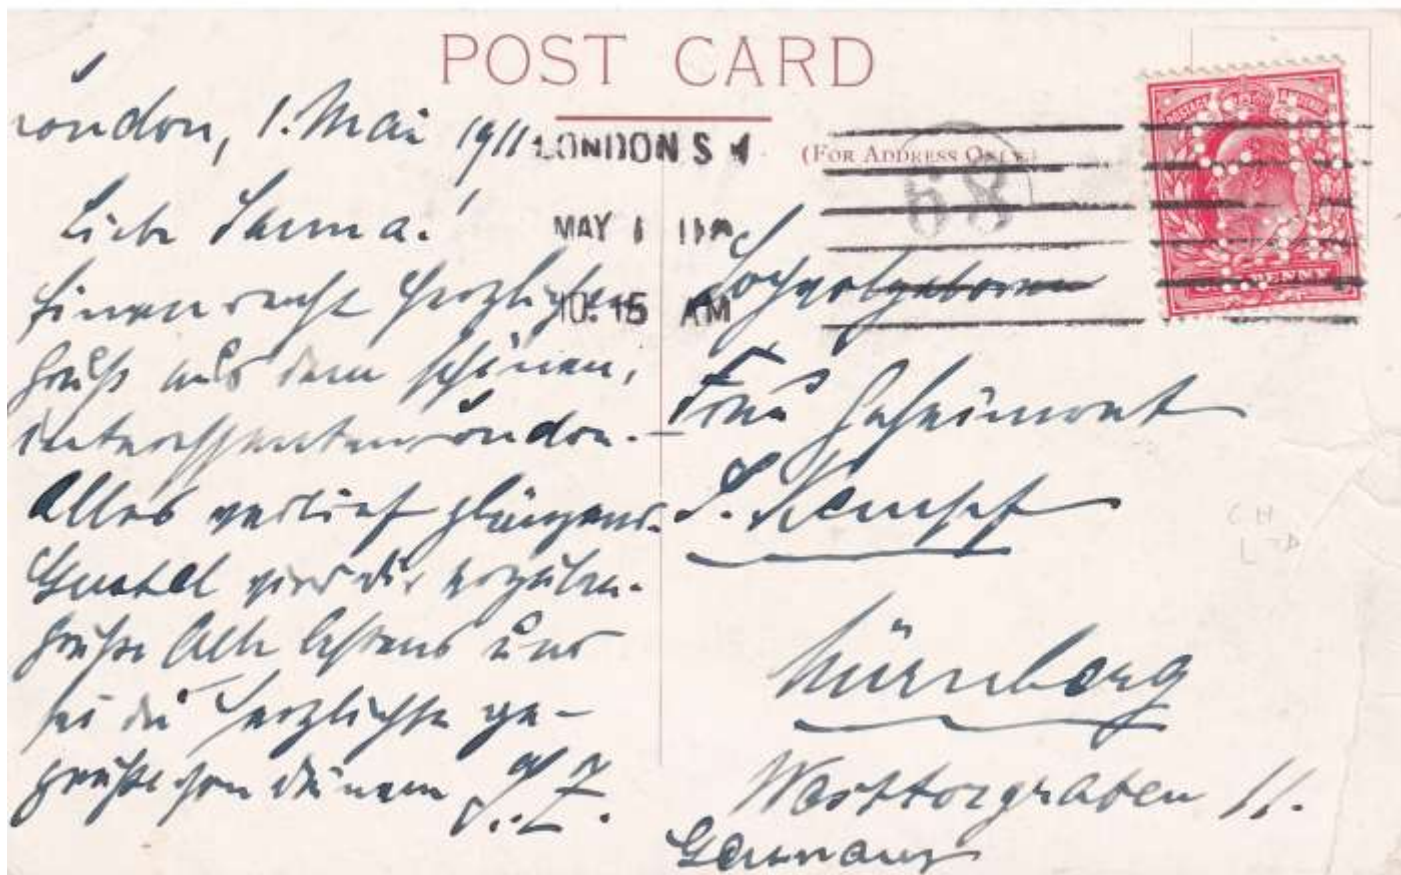 POST CARD
(FOR ADDRESS ONLY)
LONDON S
MAY 1 11
10.15 AM
58
PENNY
London, 1. Mai 1911
Liebe
Einen recht herzlichen
Gruß aus dem schönen,
interessanten London. –
Alles verlief glänzend.
Gustel wird dir erzählen.
Grüße Alle bestens und
sei du herzlichst ge-
grüßt von deinem
Hochwohlgeboren
Frau Geheimrat
S. Kempf
Nürnberg
Westtorgraben 11.
Germany
CH
L